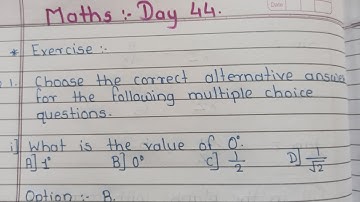 Maths :- Day 44.
Date
* Exercise :-
1. Choose the correct alternative answer
for the following multiple choice
questions.
i] What is the value of 0°
A] 1° B] 0° C] 1/2 D] 1/√2
Option :- B.